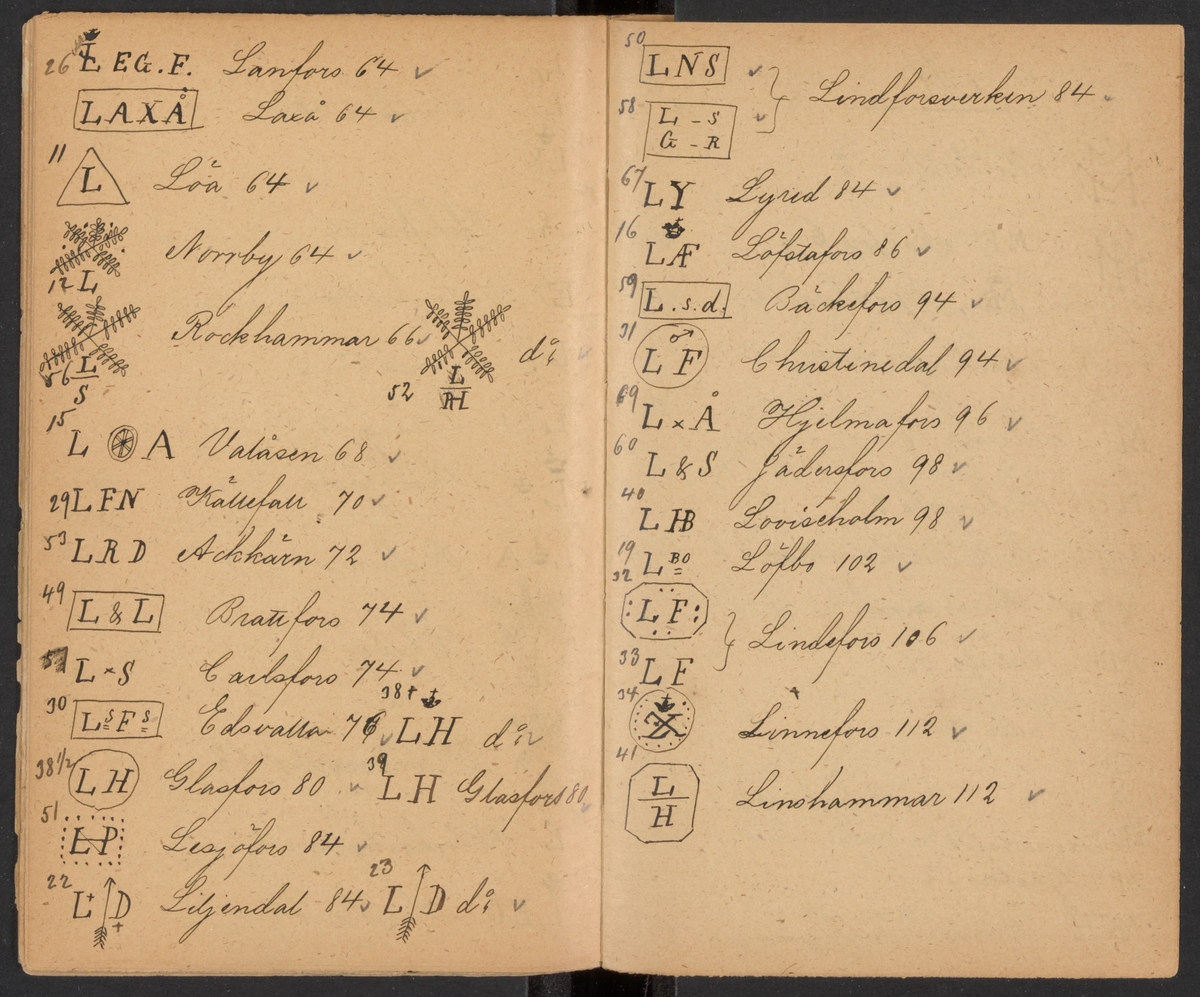 26 L EG.F. Lanfors 64 ✓
LAXÅ Laxå 64 ✓
11 L Löa 64 ✓
12 L Norrby 64 ✓
56 L S Rockhammar 66 ✓ 52 L AH do ✓
15 L A Valåsen 68 ✓
29 LFN Kättefall 70 ✓
53 LRD Ackkärn 72 ✓
49 L & L Brattfors 74 ✓
57 L × S Carlsfors 74 ✓
30 LS FS Edsvalla 76 ✓ 38+ LH do ✓
38 1/2 LH Glasfors 80 ✓ 39 LH Glasfors 80 ✓
51 LP Lesjöfors 84 ✓
22 L+ D + Liljendal 84 ✓ 23 L D do ✓
50 LNS ✓
Lindforsverken 84 ✓
58 L - S ✓
G - R
67 LY Lyred 84 ✓
16 LÆF Löfstafors 86 ✓
59 L.s.d. Bäckefors 94 ✓
31 L ♂ F Christinedal 94 ✓
69 L × Å Hjelmafors 96 ✓
60 L & S Jädersfors 98 ✓
40 L HB Loviseholm 98 ✓
19 L BO Löfbo 102 ✓
32 :L F:
Lindefors 106 ✓
33 LF
34 Linnefors 112 ✓
41 L H Linshammar 112 ✓